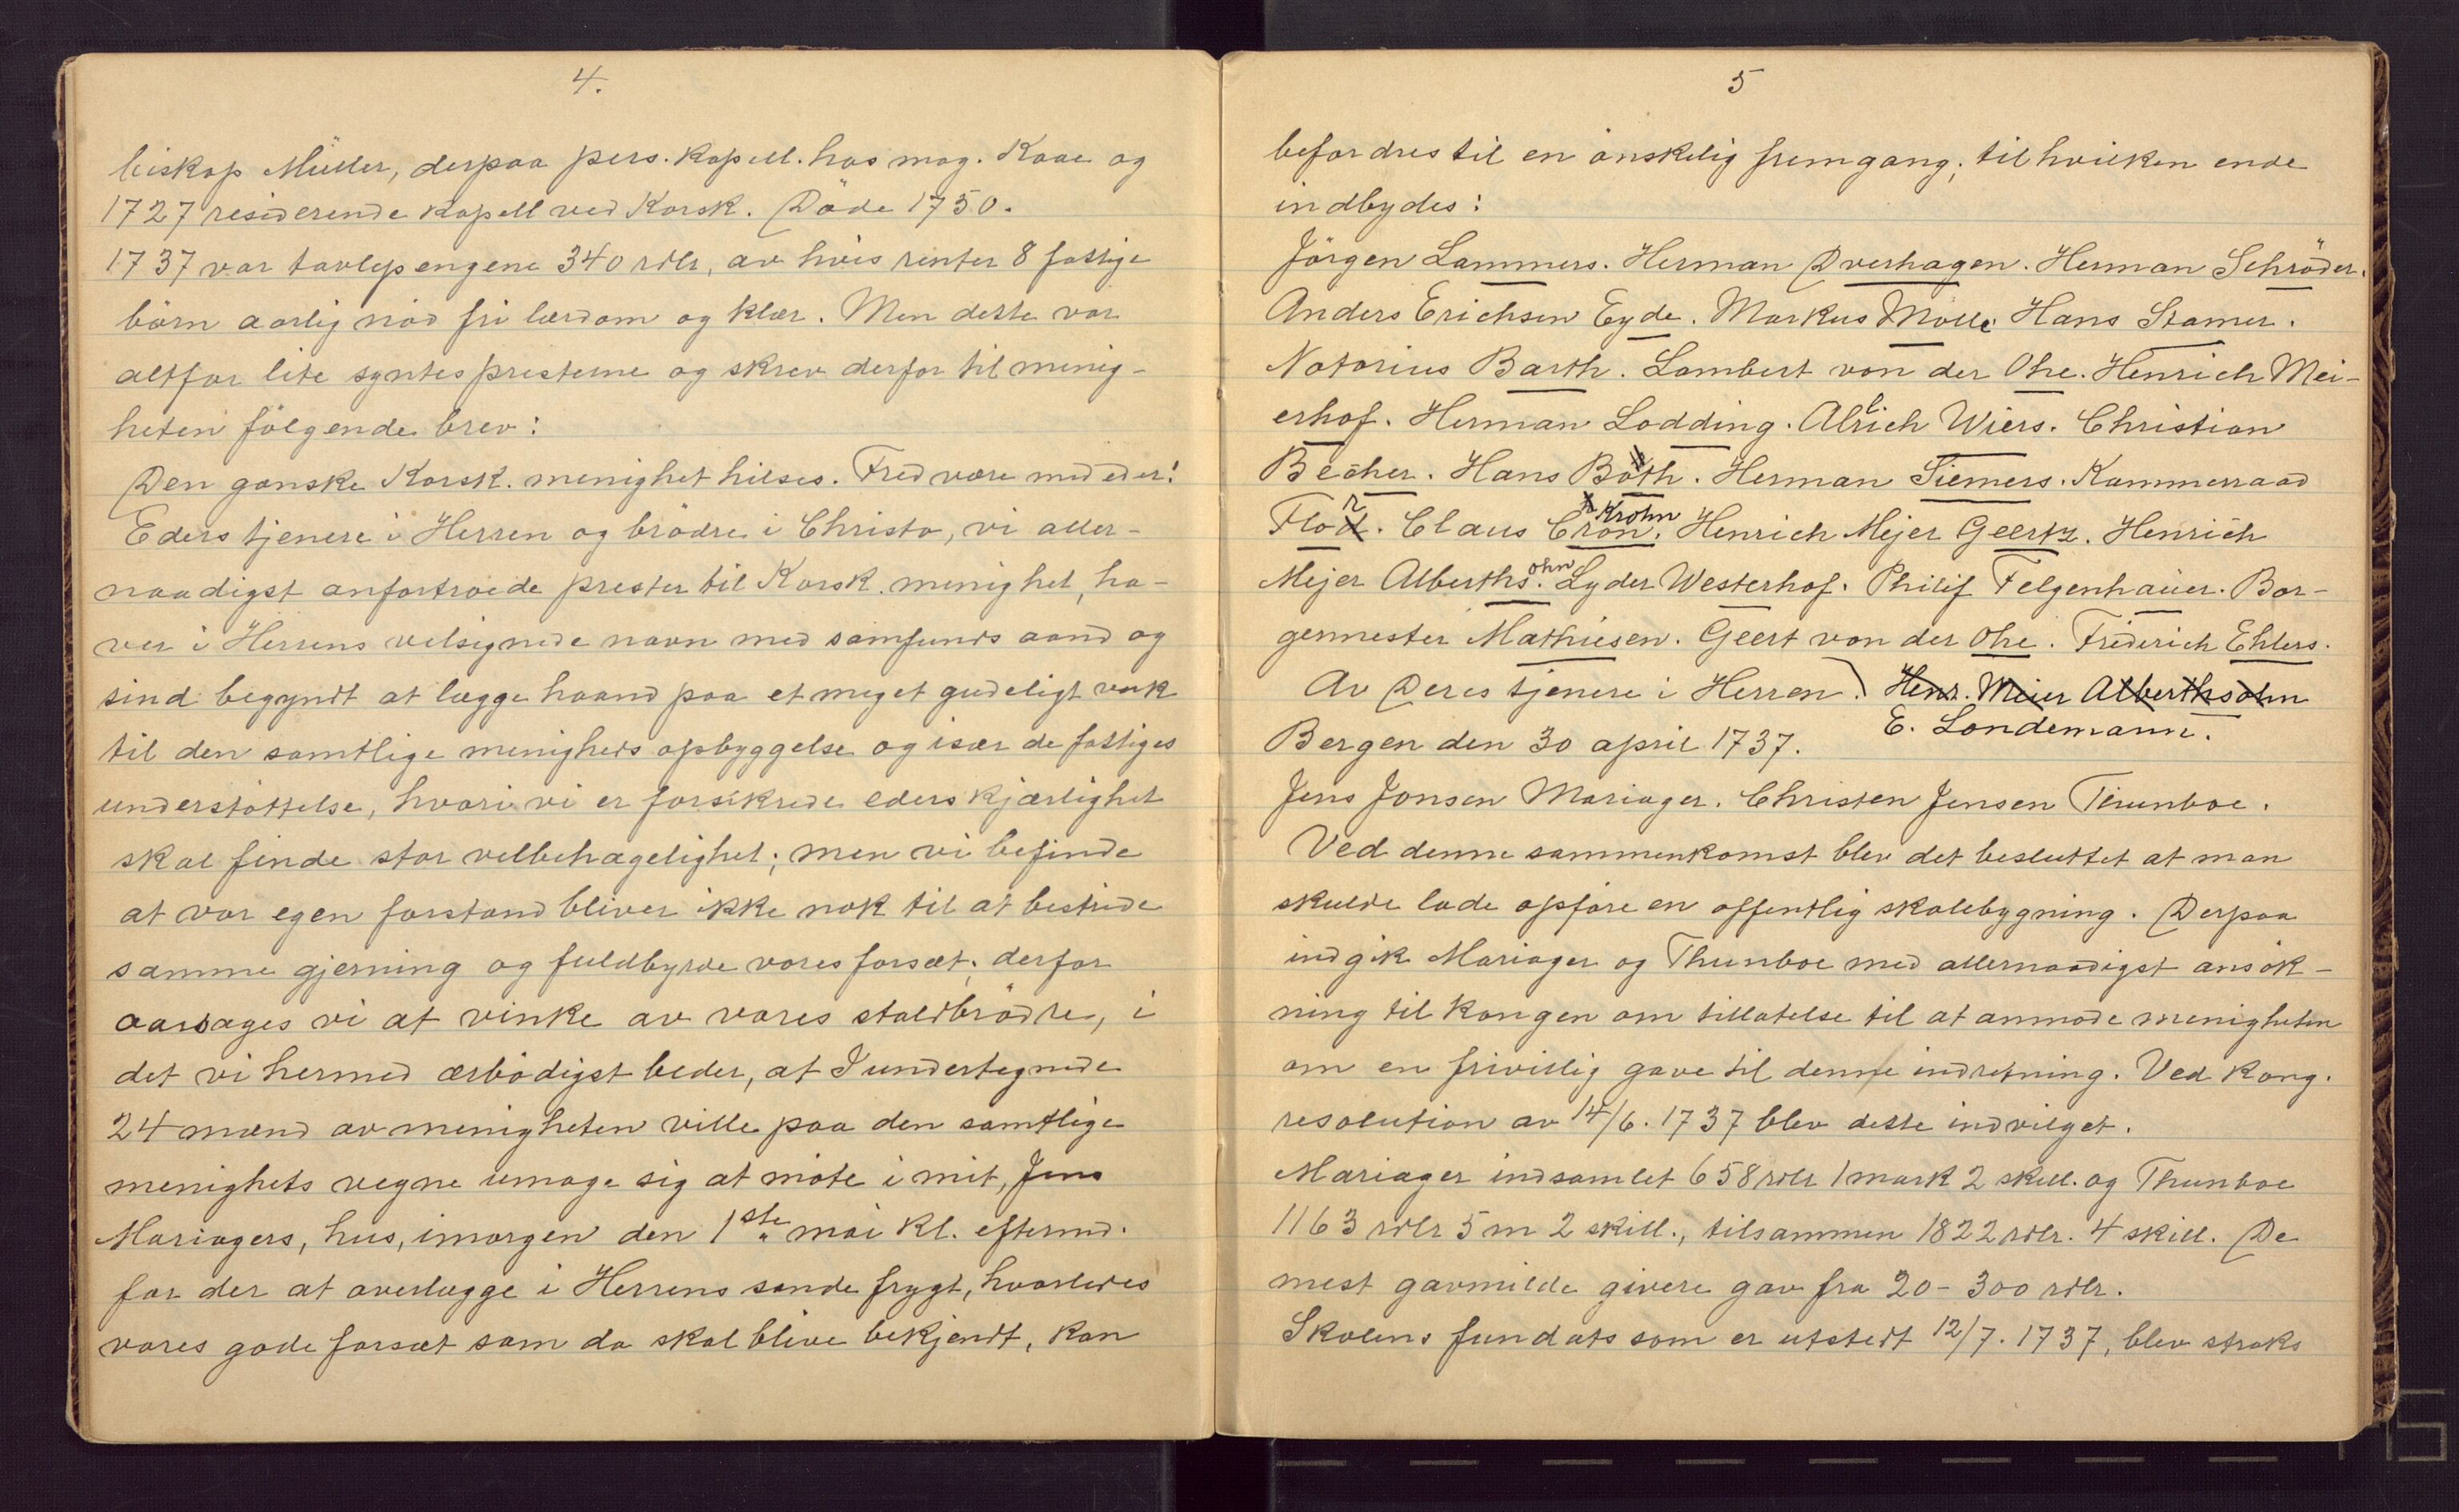 4.
biskop Müller, derpaa pers. kapell. hos mag. Kaae og
1727 residerende kapell ved Korsk. Döde 1750.
1737 var tavlepengene 340 rdlr, av hvis renter 8 fattige
börn aarlig nöd fri lærdom og klær. Men dette var
altfor lite syntes presterne og skrev derfor til menig-
heten fölgende brev:
Den ganske Korsk. menighet hilses. Fred være med eder!
Eders tjenere i Herren og brödre i Christo, vi aller-
naadigst anfortroede prester til Korsk. menighet, ha-
ver i Herrens velsignede navn med samfunds aand og
sind begyndt at lægge haand paa et meget gudeligt verk
til den samtlige menigheds opbyggelse og især de fattiges
understöttelse, hvori vi er forsikrede eders kjærlighet
skal finde stor velbehagelighet; men vi befinde
at vor egen forstand bliver ikke nok til at bestride
samme gjerning og fuldbyrde vores forsæt; derfor
aarsages vi at vinke av vores staldbrödre, i
det vi hermed ærbödigst beder, at I undertegnede
24 mænd av menigheten ville paa den samtlige
menighets vegne umage sig at möte i mit, Jens
Mariagers, hus, imorgen den 1ste mai kl. eftermd.
for der at overlægge i Herrens sande frygt, hvorledes
vores gode forsæt som da skal blive bekjendt, kan
5
befordres til en önskelig fremgang; til hvilken ende
indbydes:
Jörgen Lammers. Herman Dverhagen. Herman Schröder.
Anders Erichsen Eyde. Markus Mölle. Hans Stamer.
Notarius Barth. Lambert von der Ohe. Henrich Mei-
erhof. Herman Lodding. Alrich Wiers. Christian
Becher. Hans Böth. Herman Siemers. Kammerraad
Flor. Claus Crön. Krohn Henrich Mejer Geertz. Henrich
Mejer Alberths.ohn Lyder Westerhof. Philif Felgenhauer. Bor-
germester Mathiesen. Geert von der Ohe. Friderich Ehlers.
Av Deres tjenere i Herren) Henr. Meier Alberthsohn
E. Londemann.
Bergen den 30 april 1737.
Jens Jonsen Mariager. Christen Jensen Thunboe.
Ved denne sammenkomst blev det besluttet at man
skulde lade opföre en offentlig skolebygning. Derpaa
indgik Mariager og Thunboe med allernaadigst ansök-
ning til kongen om tillatelse til at anmode menigheten
om en frivillig gave til denne indretning. Ved kong.
resolution av 14/6. 1737 blev dette indvilget.
Mariager indsamlet 658 rdlr 1 mark 2 skill. og Thunboe
1163 rdlr 5 m 2 skill., tilsammen 1822 rdlr. 4 skill. De
mest gavmilde givere gav fra 20 - 300 rdlr.
Skolens fundats som er utstedt 12/7. 1737, blev straks